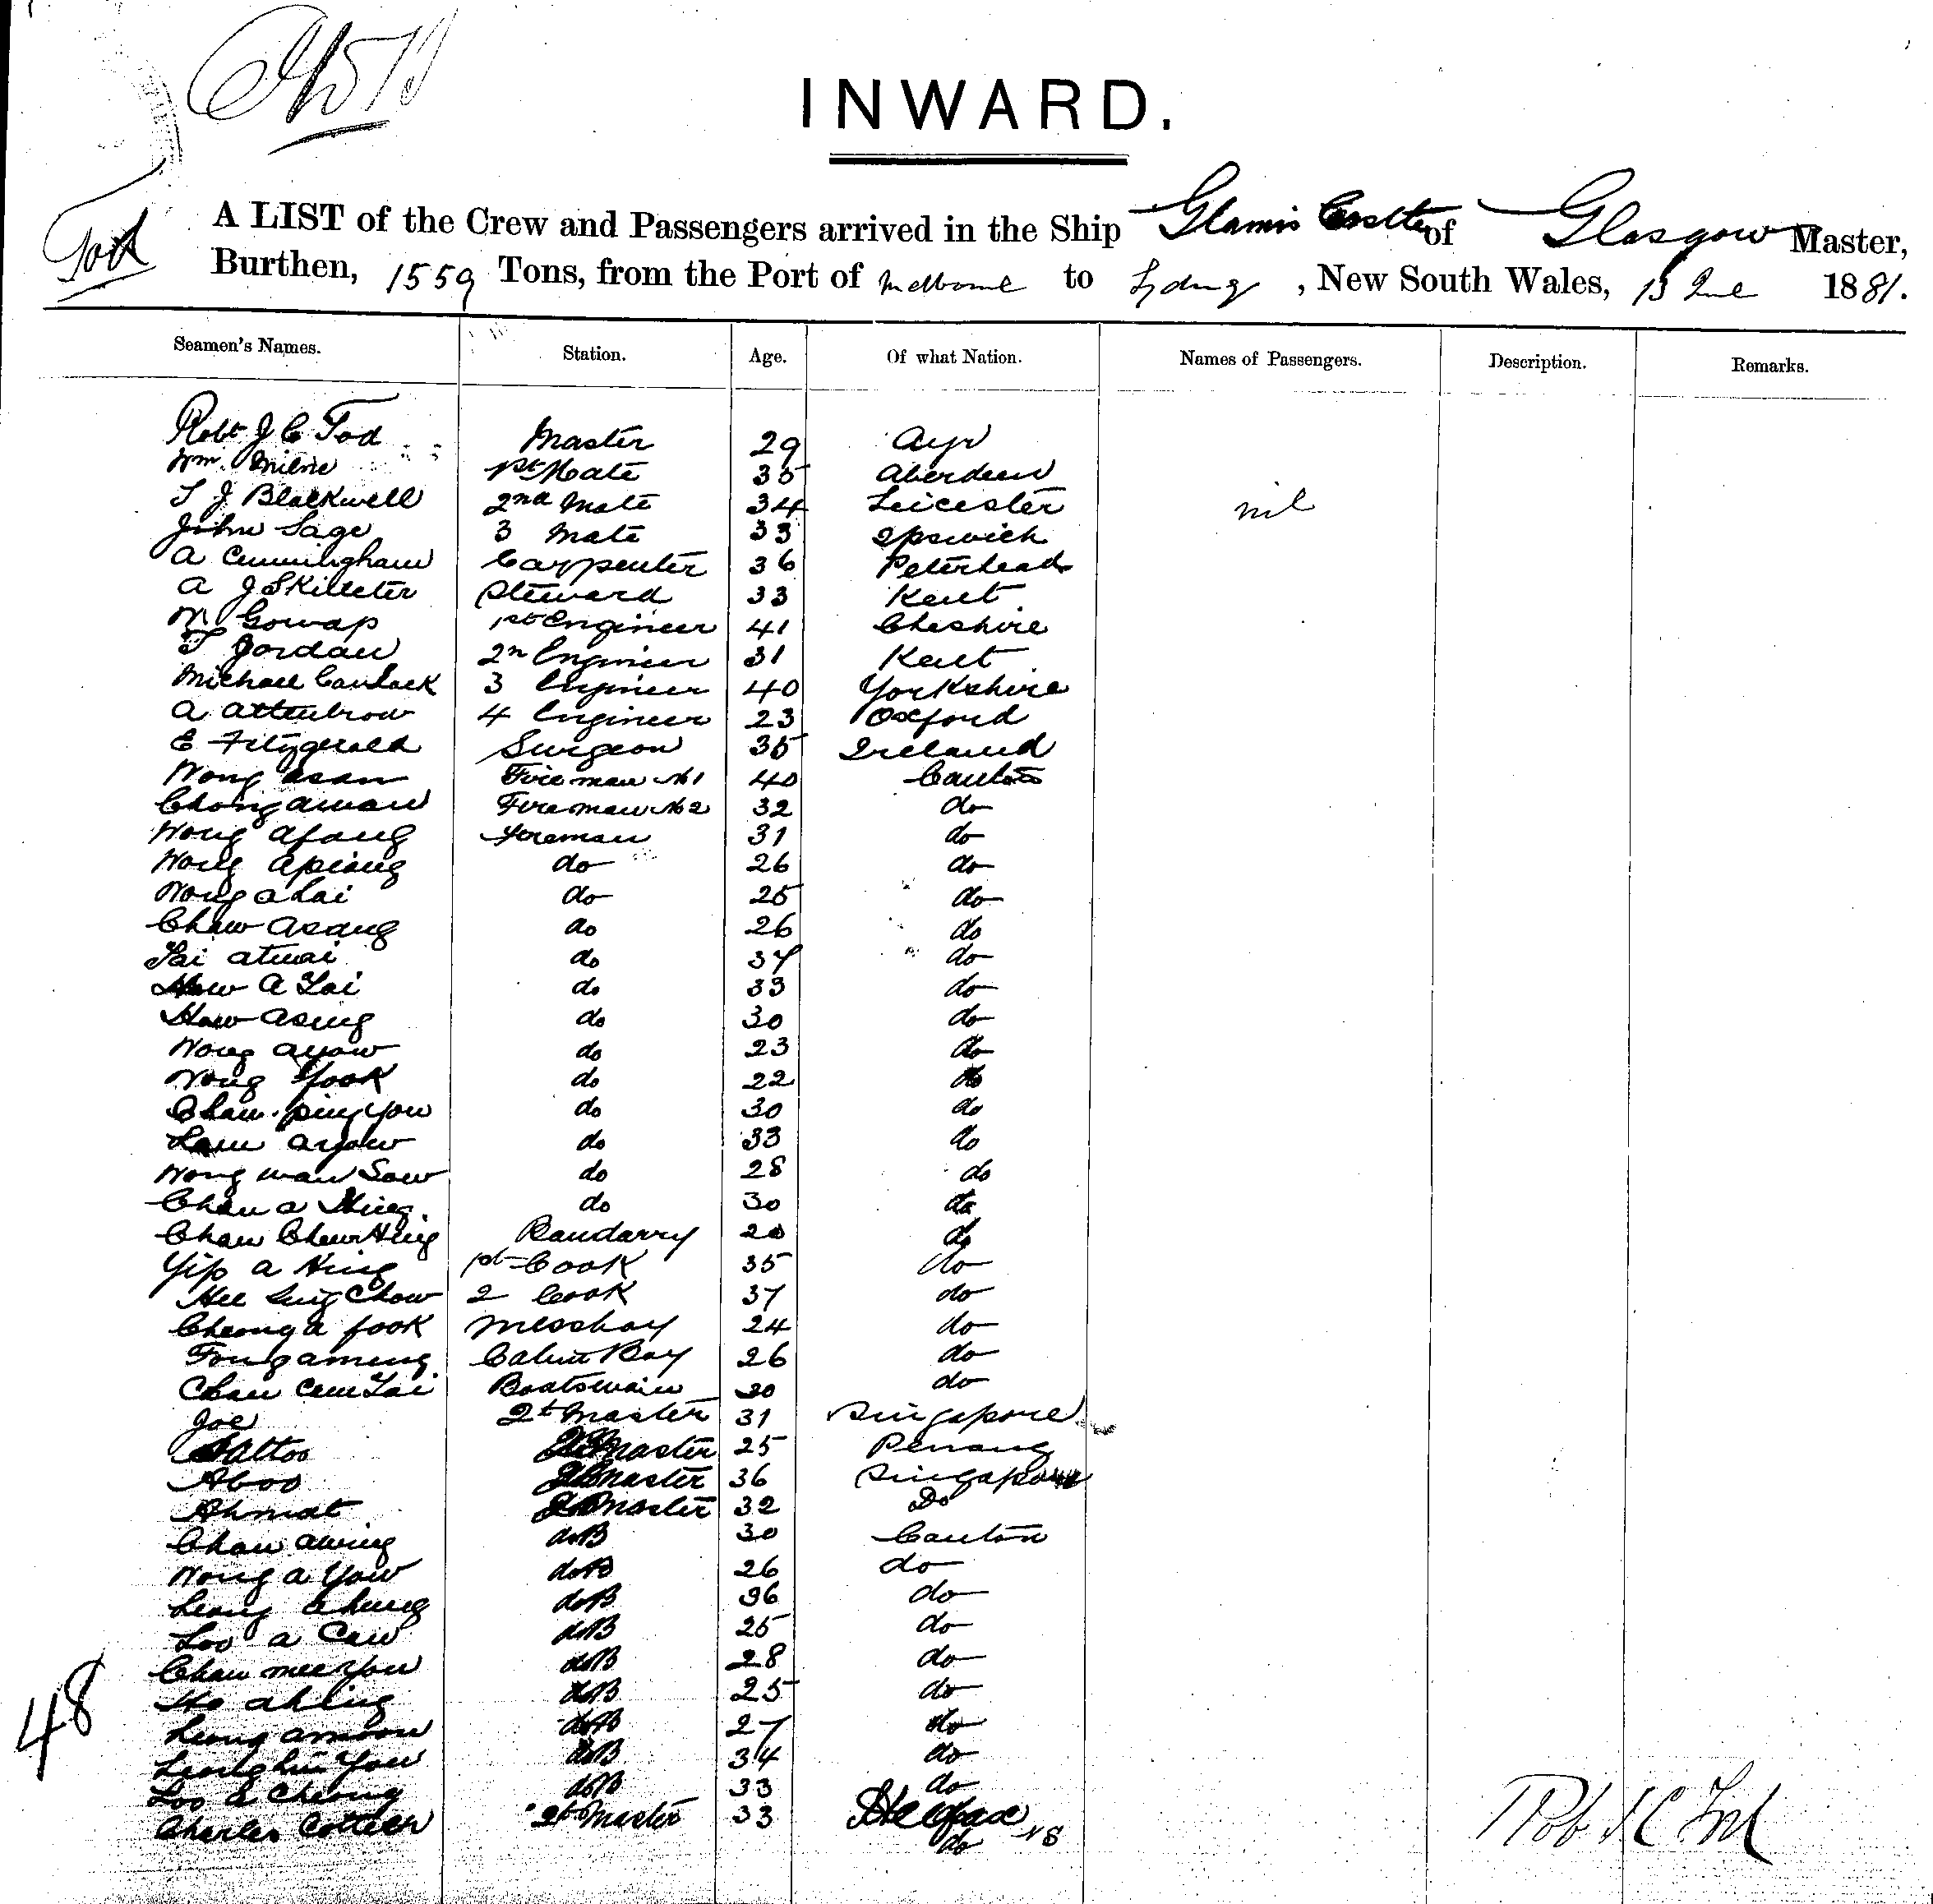 INWARD.
Tod
A LIST of the Crew and Passengers arrived in the Ship Glamis Castle of Glasgow Master,
Burthen, 1559 Tons, from the Port of Melbourne to Sydney, New South Wales, 13 June 1881.
Seamen's Names. Station. Age. Of what Nation. Names of Passengers. Description. Remarks.
Robt J C Tod Master 29 Ayr
Wm. Milne 1st Mate 35 Aberdeen
T J Blackwell 2nd Mate 34 Leicester nil
John Sage 3 Mate 33 Ipswich
A Cunningham Carpenter 36 Peterhead
A J Skilleter Steward 33 Kent
W Gowap 1st Engineer 41 Cheshire
T Jordan 2n Engineer 31 Kent
Michael 3 Engineer 40 Yorkshire
A Attenbrow 4 Engineer 23 Oxford
E Fitzgerald Surgeon 35 Ireland
Wong Asam Fireman No 1 40 Canton
Chong Awan Fireman No 2 32 do
Wong Afang Fireman 31 do
Wong Apiang do 26 do
Wong a Lai do 25 do
Chaw Asang do 26 do
Lai Atwai do 37 do
How A Lai do 33 do
How Asing do 30 do
Wong Ayow do 23 do
Wong Fook do 22 do
Chan Ping You do 30 do
Lam Ayow do 33 do
Wong Wan Sow do 28 do
Chan a Hing do 30 do
Chan Chew Hing 20 do
Yip a Hing 1st Cook 35 do
Hee Sing Chow 2 Cook 37 do
Cheong a Fook Messboy 24 do
Fong Ameng Cabin Boy 26 do
Chan Cam Tai Boatswain 30 do
Joe Qt Master 31 Singapore
Qt Master 25 Penang
Aboo Qt Master 36 Singapore
Ahmat Qt Master 32 Do
Chan Awing AB 30 Canton
Wong a Yow AB 26 do
Leong Ahung AB 36 do
Loo a Caw AB 25 do
Chan Mee You AB 28 do
Ho Ahling AB 25 do
Leong Amoon AB 27 do
Leong Lin You AB 34 do
Loo a Cheong AB 33 do
Charles Cottier Qt Master 33 Halifax NS
do
48
Rob J C Tod